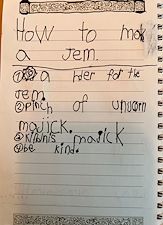 How to mak
a Jem.
① a rder for the
Jem.
② pinch of unicorn
majick.
③ majick
④ be kind.